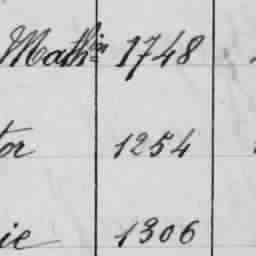 Mathin 1748
tor 1254
ie 1306